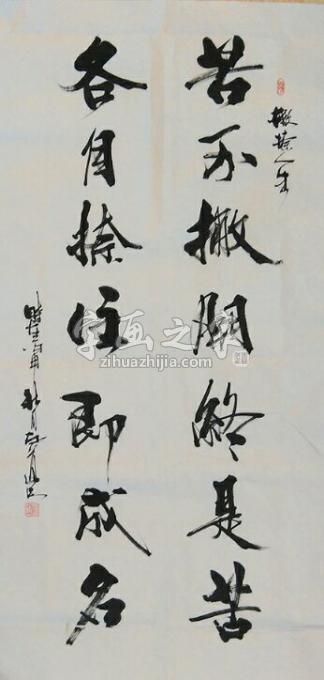 撇捺人生
若不撇開終是苦
各自捺住即成名
字画之家
zihuazhijia.com